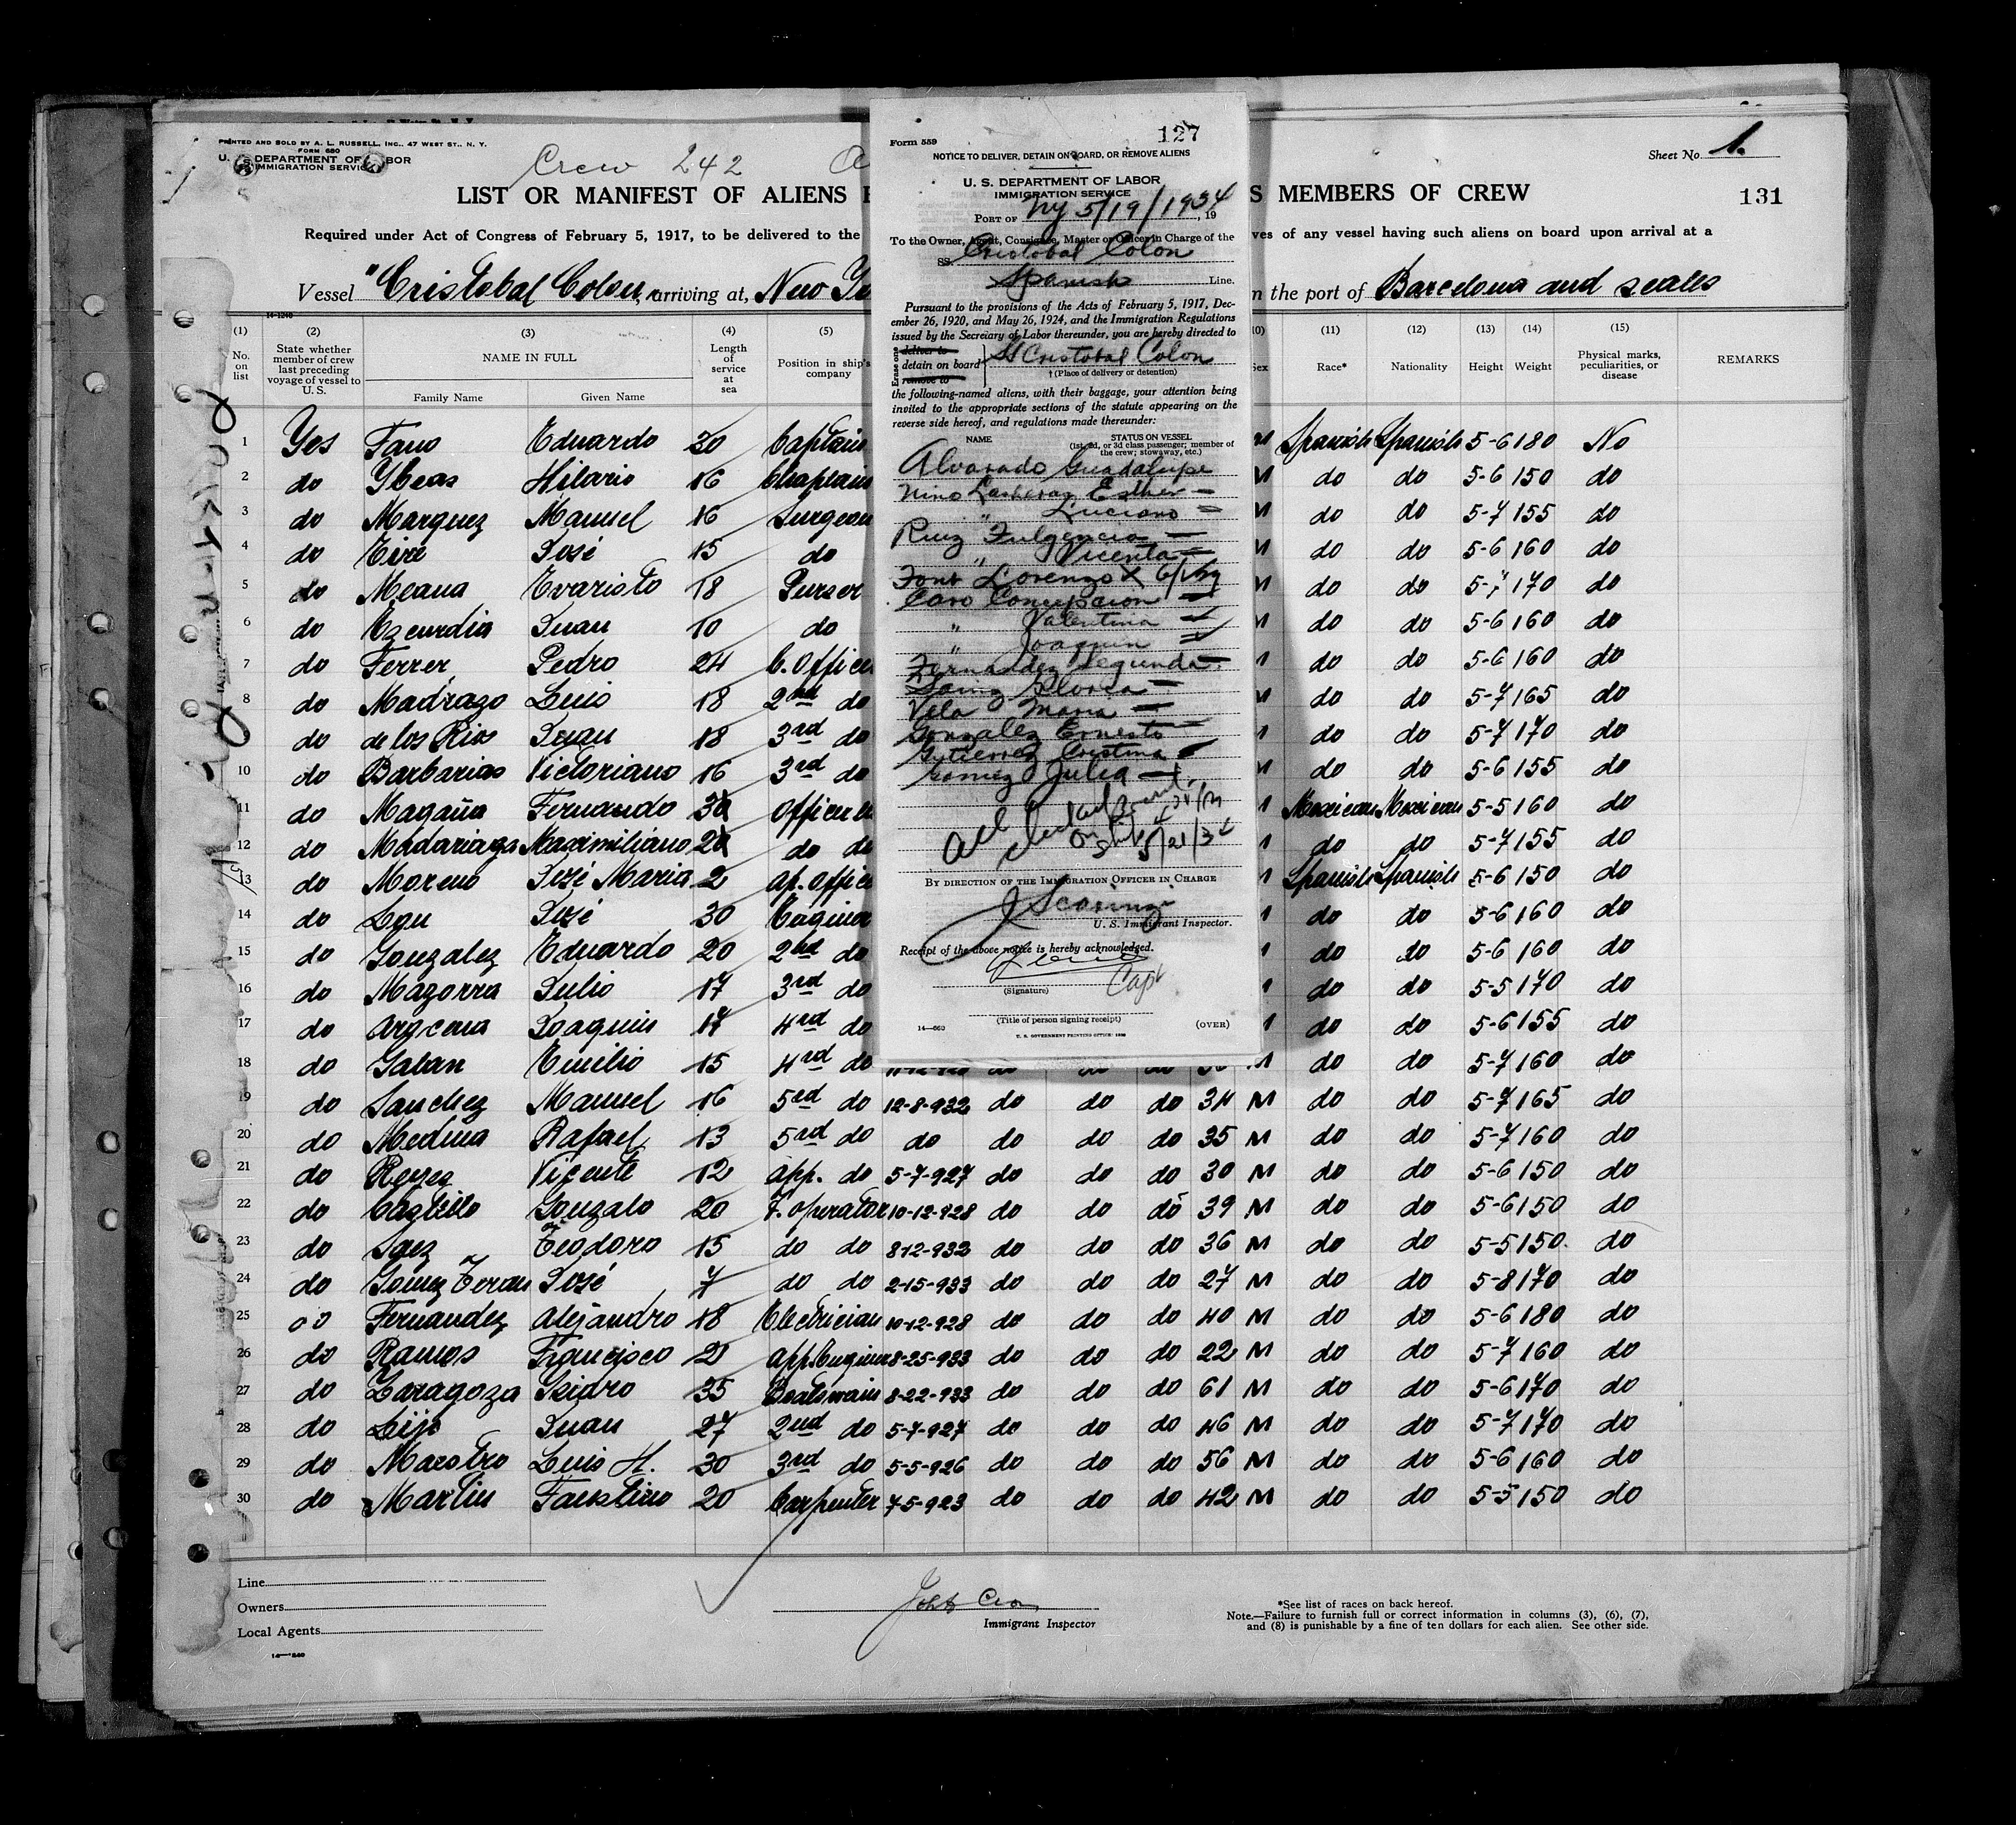 PRINTED AND SOLD BY A. L. RUSSELL, INC., 47 WEST ST., N. Y.
FORM 680
U. S. DEPARTMENT OF LABOR
IMMIGRATION SERVICE
Crew 242
Sheet No. 1.
LIST OR MANIFEST OF ALIENS
MEMBERS OF CREW
131
Required under Act of Congress of February 5, 1917, to be delivered to the
of any vessel having such aliens on board upon arrival at a
Vessel "Cristobal Colon", arriving at, New
the port of Barcelona and
14-1240
(1) (2) (3) (4) (5) (11) (12) (13) (14) (15)
No. on list
State whether member of crew last preceding voyage of vessel to U. S.
NAME IN FULL
Family Name Given Name
Length of service at sea
Position in ship's company
Race* Nationality Height Weight
Physical marks, peculiarities, or disease
REMARKS
1 Yes Fano Eduardo 30 Captain M Spanish Spanish 5-6 180 No
2 do Ybeas Hilario 16 Chaplain M do do 5-6 150 do
3 do Marquez Manuel 16 Surgeon M do do 5-7 155 do
4 do José 15 do M do do 5-6 160 do
5 do Meana Evaristo 18 Purser M do do 170 do
6 do Ezcurdia Juan 10 do M do do 5-6 160 do
7 do Ferrer Pedro 24 C. Officer do do 5-6 160 do
8 do Madrazo Luis 18 2nd do M do do 5-7 165 do
do de los Rios Juan 18 3rd do do do 5-7 170 do
10 do Barbarias Victoriano 16 3rd do M do do 5-6 155 do
11 do Magaña Fernando Mexican Mexican 5-5 160 do
12 do Madariaga Maximiliano do do do do 5-7 155 do
13 do Moreno José Maria 2 Ap. Spanish Spanish 5-6 150 do
14 do José 30 do do 5-6 160 do
15 do Gonzalez Eduardo 20 2nd do do do 5-6 160 do
16 do Mazorra Julio 17 3rd do do do 5-5 170 do
17 do Joaquin 17 4rd do do do 5-6 155 do
18 do Galan Emilio 15 4rd do M do do 5-7 160 do
19 do Sanchez Manuel 16 5rd do 12-8-932 do do do 34 M do do 5-7 165 do
20 do Medina Rafael 13 5rd do do do do do 35 M do do 5-7 160 do
21 do Reyes Vicente 12 App. do 5-7-927 do do do 30 M do do 5-6 150 do
22 do Gonzalo 20 operator 10-12-928 do do do 39 M do do 5-6 150 do
23 do Saez Teodoro 15 do do 8-12-932 do do do 36 M do do 5-5 150 do
24 do Gomez Teran José 7 do do 2-15-933 do do do 27 M do do 5-8 170 do
25 Fernandez Alejandro 18 Electrician 10-12-928 do do do 40 M do do 5-6 180 do
26 do Ramos Francisco 2 8-25-933 do do do 22 M do do 5-7 160 do
27 do Zaragoza Isidro 35 Boatswain 8-22-933 do do do 61 M do do 5-6 170 do
28 do Juan 27 2nd do 5-7-927 do do do 46 M do do 5-7 170 do
29 do Maestro Luis H. 30 3rd do 5-5-926 do do do 56 M do do 5-6 160 do
30 do Martin Faustino 20 Carpenter 7-5-923 do do do 42 M do do 5-5 150 do
Line
Owners
Local Agents
Immigrant Inspector
*See list of races on back hereof.
Note.—Failure to furnish full or correct information in columns (3), (6), (7),
and (8) is punishable by a fine of ten dollars for each alien. See other side.
Form 559
127
NOTICE TO DELIVER, DETAIN ON BOARD, OR REMOVE ALIENS
U. S. DEPARTMENT OF LABOR
IMMIGRATION SERVICE
PORT OF NY 5/19/1934, 19
To the Owner, Agent, Consignee, Master or Officer in Charge of the
SS. Cristobal Colon
Spanish Line.
Pursuant to the provisions of the Acts of February 5, 1917, Dec-
ember 26, 1920, and May 26, 1924, and the Immigration Regulations
issued by the Secretary of Labor thereunder, you are hereby directed to
Erase one
deliver to
detain on board
remove to
SS Cristobal Colon
† (Place of delivery or detention)
the following-named aliens, with their baggage, your attention being
invited to the appropriate sections of the statute appearing on the
reverse side hereof, and regulations made thereunder:
NAME STATUS ON VESSEL
(1st, 2d, or 3d class passenger; member of
the crew; stowaway, etc.)
Alvarado Guadalupe
Nino Esther
" Luciano
Ruiz Fulgencia
" Vicenta
Font Lorenzo X
Caro Concepcion
" Valentina
" Joaquin
Fernandez Segunda
Sainz Gloria
Vela Maria
Gonzalez Ernesto
Gutierrez Cristina
Gomez Julia
All
5/21/34
BY DIRECTION OF THE IMMIGRATION OFFICER IN CHARGE
U. S. Immigrant Inspector.
Receipt of the above notice is hereby acknowledged.
Capt
(Signature)
(Title of person signing receipt)
14—660
(OVER)
U. S. GOVERNMENT PRINTING OFFICE